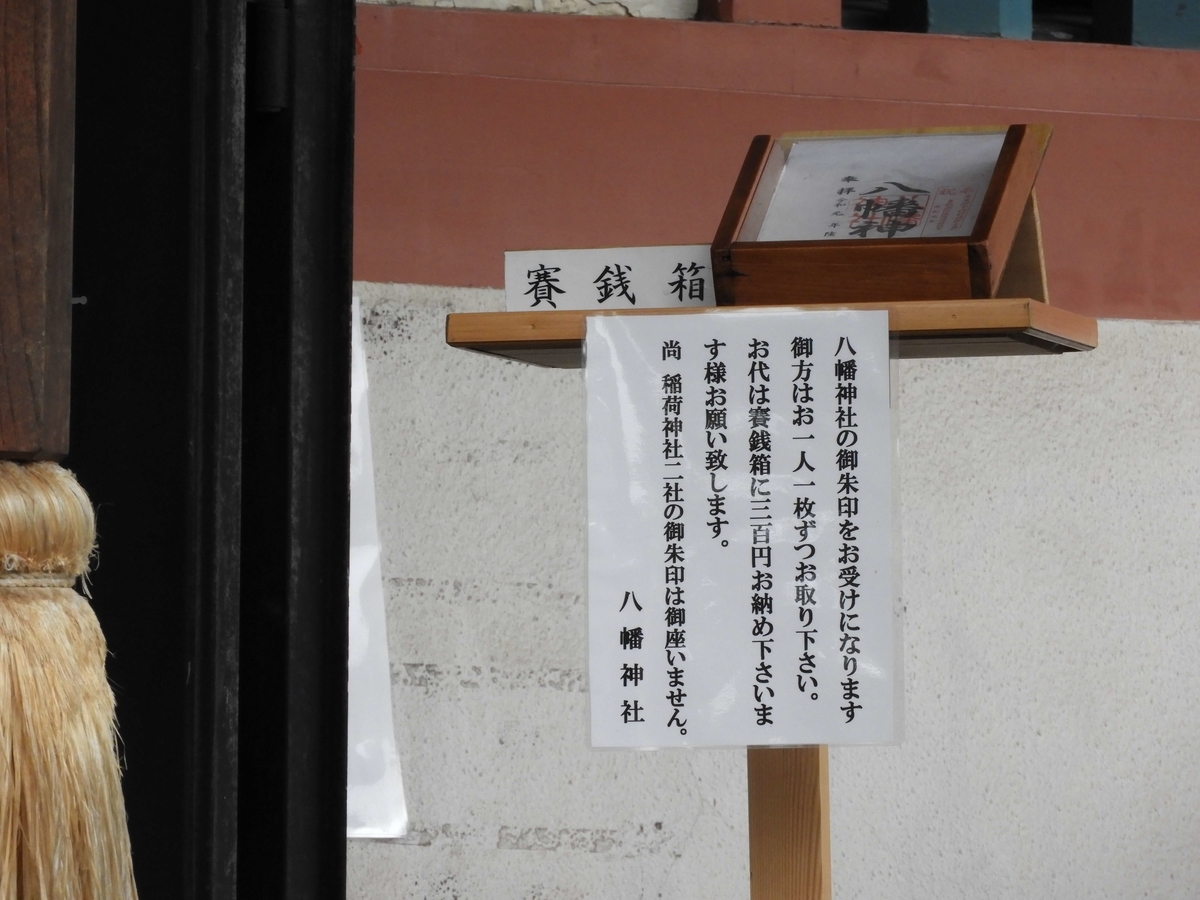 奉拝
八幡神
令和元年
賽銭箱
八幡神社の御朱印をお受けになります
御方はお一人一枚ずつお取り下さい。
お代は賽銭箱に三百円お納め下さいま
す様お願い致します。
尚 稲荷神社二社の御朱印は御座いません。
八幡神社